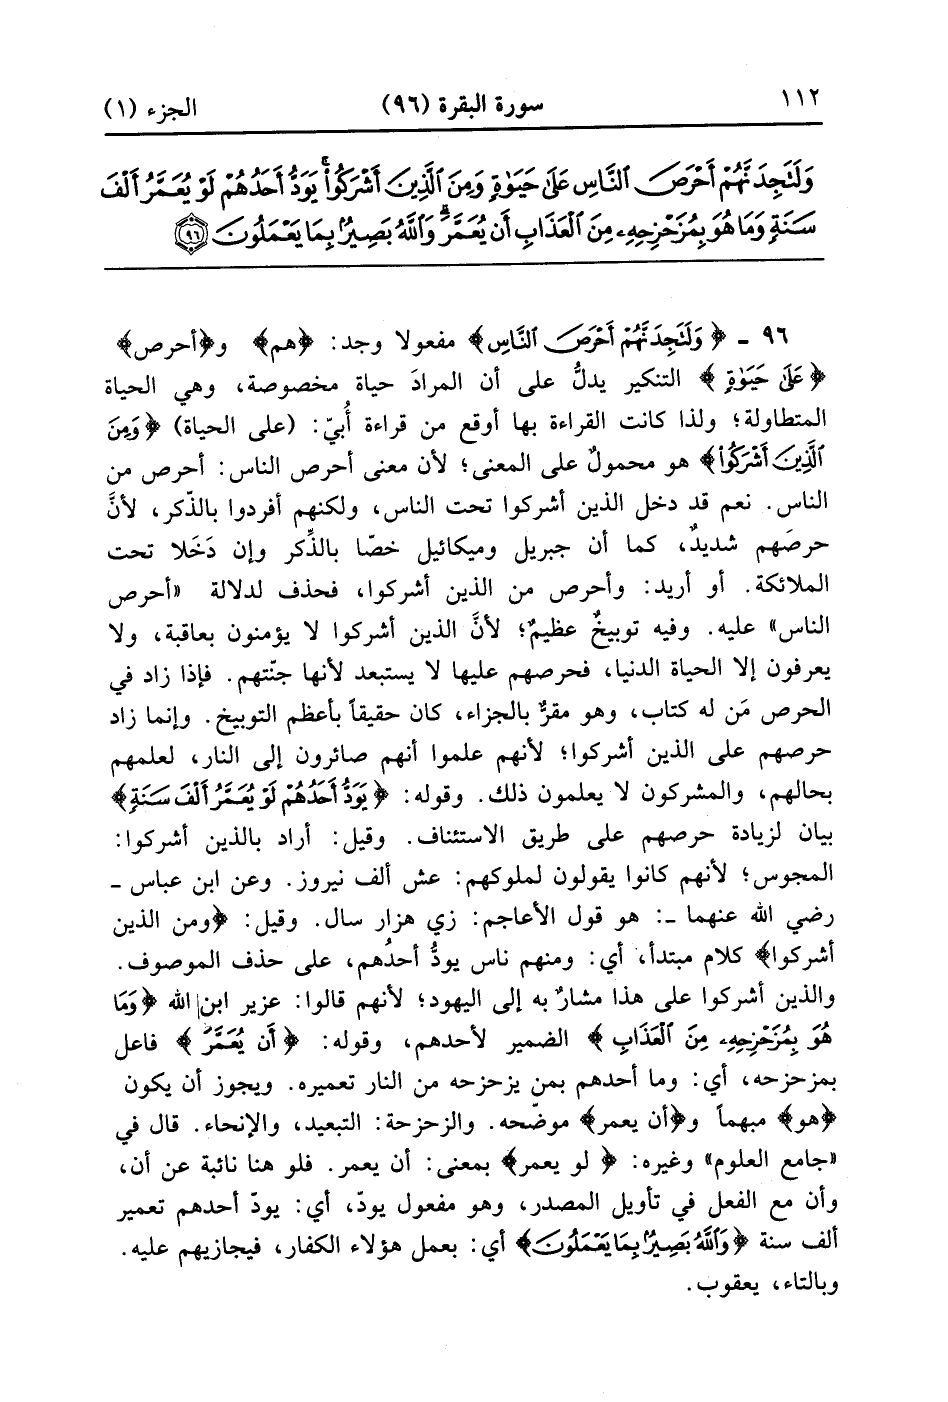 ١١٢
سورة البقرة (٩٦)
الجزء (١)
وَلَتَجِدَنَّهُمْ أَحْرَصَ ٱلنَّاسِ عَلَىٰ حَيَوٰةٍ وَمِنَ ٱلَّذِينَ أَشْرَكُوا۟ ۚ يَوَدُّ أَحَدُهُمْ لَوْ يُعَمَّرُ أَلْفَ
سَنَةٍ وَمَا هُوَ بِمُزَحْزِحِهِۦ مِنَ ٱلْعَذَابِ أَن يُعَمَّرَ ۗ وَٱللَّهُ بَصِيرٌۢ بِمَا يَعْمَلُونَ ۝٩٦
٩٦ ـ ﴿ وَلَتَجِدَنَّهُمْ أَحْرَصَ ٱلنَّاسِ﴾ مفعولا وجد: ﴿هم﴾ و﴿أحرص﴾
﴿ عَلَىٰ حَيَوٰةٍ ﴾ التنكير يدلُّ على أن المرادَ حياة مخصوصة، وهي الحياة
المتطاولة؛ ولذا كانت القراءة بها أوقع من قراءة أُبيّ: (على الحياة) ﴿ وَمِنَ
ٱلَّذِينَ أَشْرَكُوا۟﴾ هو محمولٌ على المعنى؛ لأن معنى أحرص الناس: أحرص من
الناس. نعم قد دخل الذين أشركوا تحت الناس، ولكنهم أفردوا بالذّكر، لأنَّ
حرصَهم شديدٌ، كما أن جبريل وميكائيل خصّا بالذِّكر وإن دَخَلا تحت
الملائكة. أو أريد: وأحرص من الذين أشركوا، فحذف لدلالة «أحرص
الناس» عليه. وفيه توبيخٌ عظيمٌ؛ لأنَّ الذين أشركوا لا يؤمنون بعاقبة، ولا
يعرفون إلا الحياة الدنيا، فحرصهم عليها لا يستبعد لأنها جنّتهم. فإذا زاد في
الحرص مَن له كتاب، وهو مقرٌّ بالجزاء، كان حقيقاً بأعظم التوبيخ. وإنما زاد
حرصهم على الذين أشركوا؛ لأنهم علموا أنهم صائرون إلى النار، لعلمهم
بحالهم، والمشركون لا يعلمون ذلك. وقوله: ﴿ يَوَدُّ أَحَدُهُمْ لَوْ يُعَمَّرُ أَلْفَ سَنَةٍ﴾
بيان لزيادة حرصهم على طريق الاستئناف. وقيل: أراد بالذين أشركوا:
المجوس؛ لأنهم كانوا يقولون لملوكهم: عش ألف نيروز. وعن ابن عباس ـ
رضي الله عنهما ـ: هو قول الأعاجم: زي هزار سال. وقيل: ﴿ومن الذين
أشركوا﴾ كلام مبتدأ، أي: ومنهم ناس يودُّ أحدُهم، على حذف الموصوف.
والذين أشركوا على هذا مشارٌ به إلى اليهود؛ لأنهم قالوا: عزير ابن الله ﴿ وَمَا
هُوَ بِمُزَحْزِحِهِۦ مِنَ ٱلْعَذَابِ ﴾ الضمير لأحدهم، وقوله: ﴿ أَن يُعَمَّرَ ۗ ﴾ فاعل
بمزحزحه، أي: وما أحدهم بمن يزحزحه من النار تعميره. ويجوز أن يكون
﴿هو﴾ مبهماً و﴿أن يعمر﴾ موضّحه. والزحزحة: التبعيد، والإنحاء. قال في
«جامع العلوم» وغيره: ﴿ لو يعمر﴾ بمعنى: أن يعمر. فلو هنا نائبة عن أن،
وأن مع الفعل في تأويل المصدر، وهو مفعول يودّ، أي: يودّ أحدهم تعمير
ألف سنة ﴿ وَٱللَّهُ بَصِيرٌۢ بِمَا يَعْمَلُونَ﴾ أي: بعمل هؤلاء الكفار، فيجازيهم عليه.
وبالتاء، يعقوب.